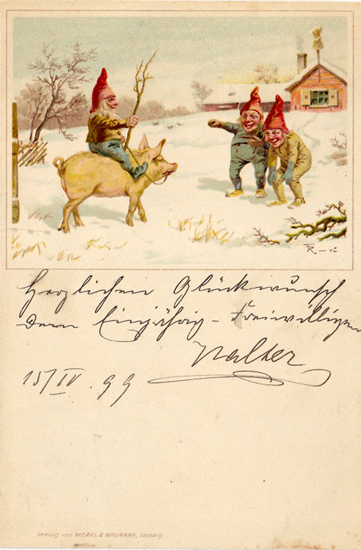 Herzlichen Glückwunsch
dem Einjährig-Freiwilligen
Walter
15/IV. 99
Verlag von WEZEL & NAUMANN, Leipzig.